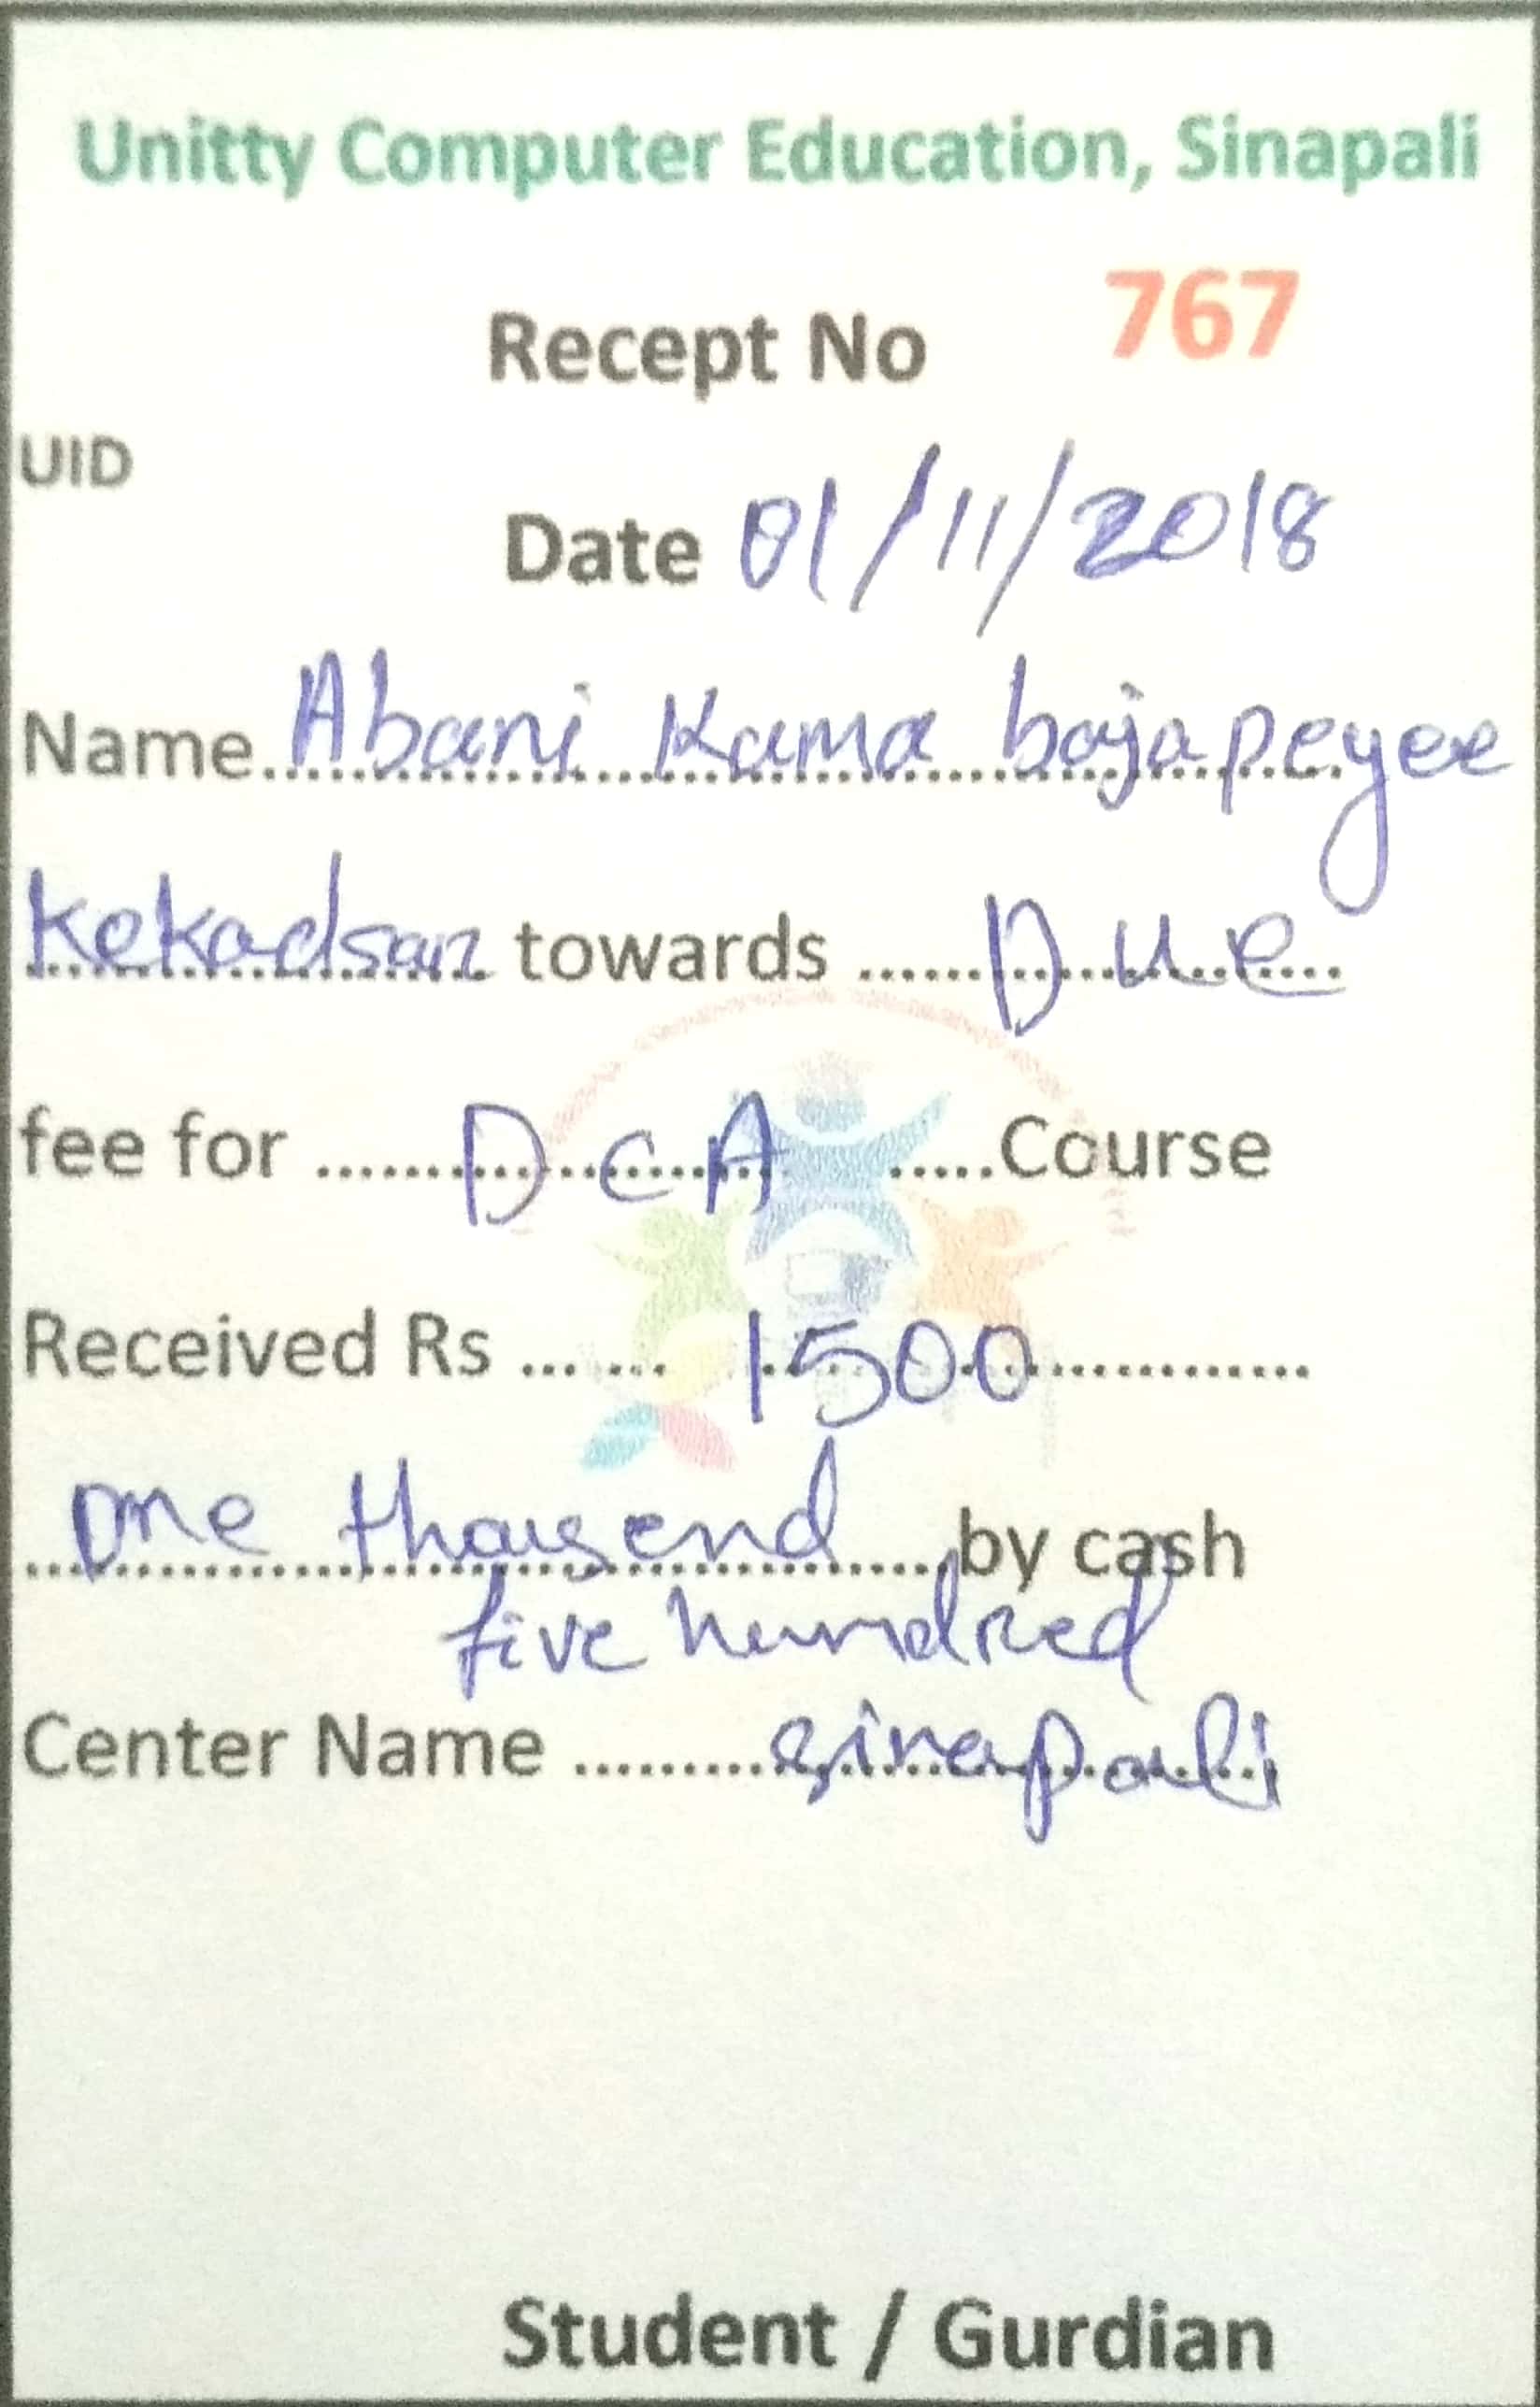 Unitty Computer Education, Sinapali
Recept No 767
UID
Date 01/11/2018
Name Abani Kama bajapeyee
Kekadsan towards Due
fee for DCA Course
Received Rs 1500
One thousend by cash
five hundred
Center Name sinapali
Student / Gurdian